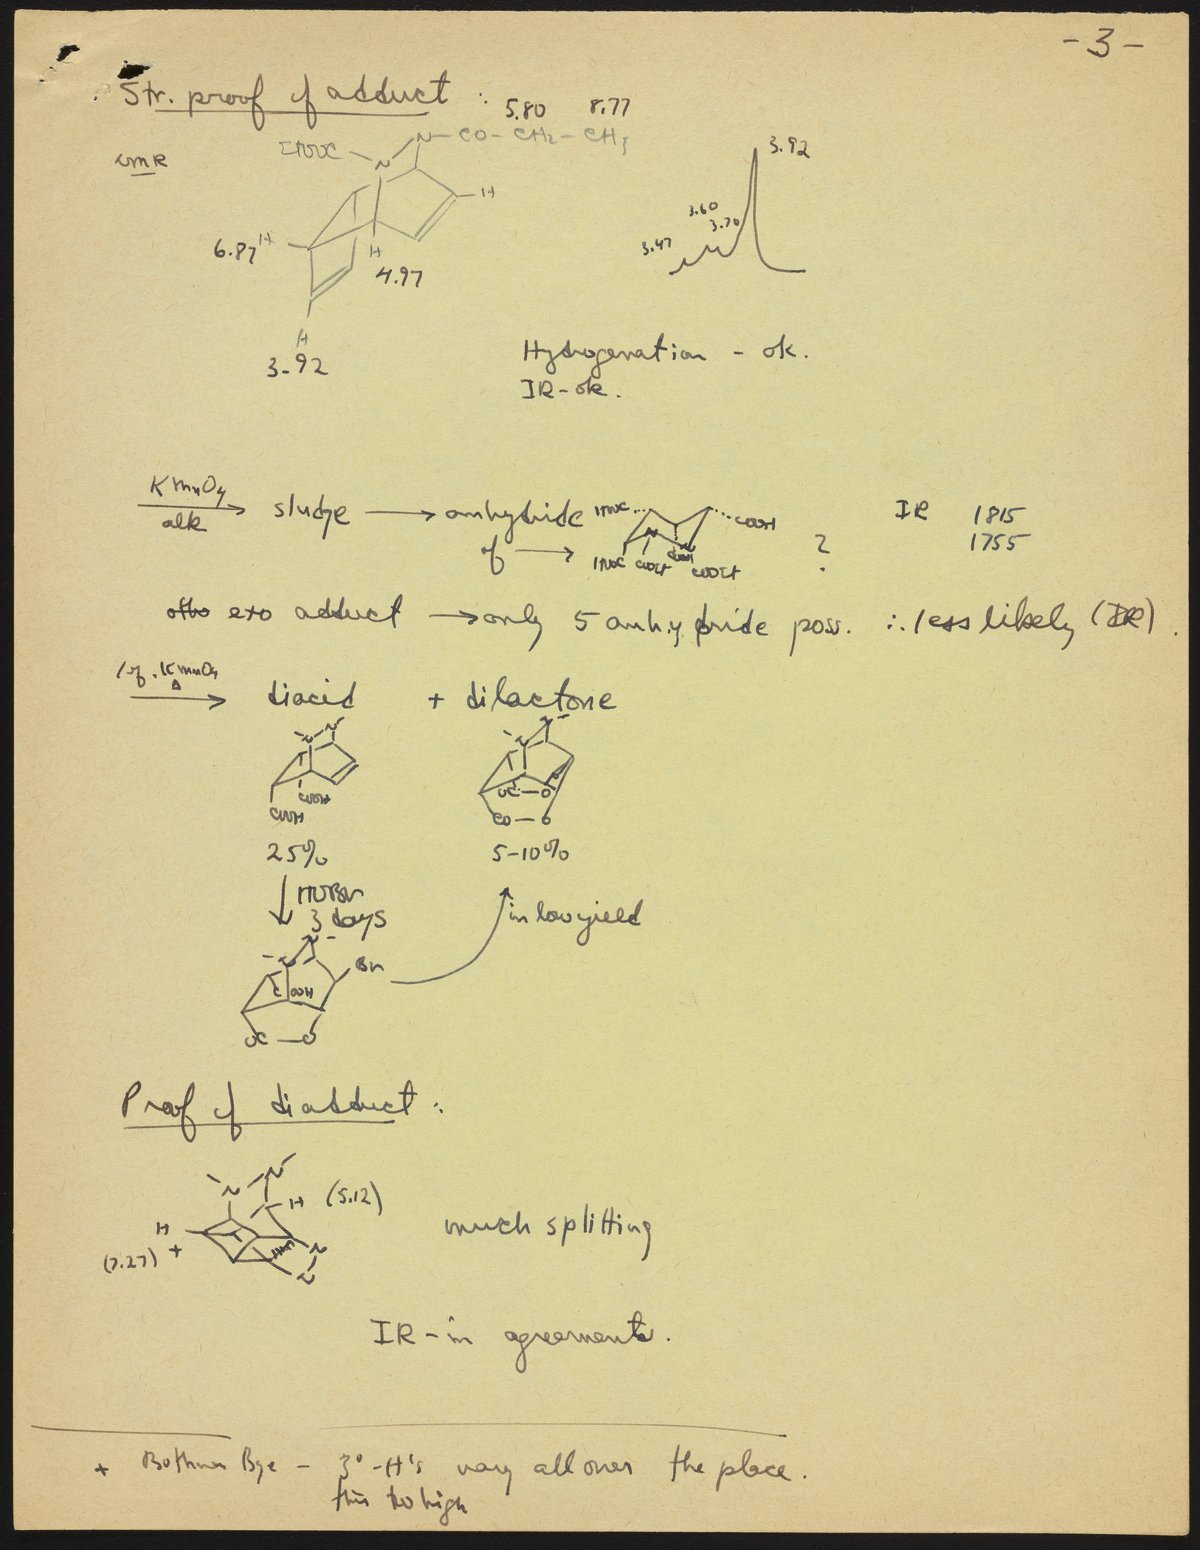 -3-
Str. proof of adduct :
5.80 8.77
EtOOC N N-CO-CH2-CH3
nmR
3.92
H
3.60
3.70
6.87 H
3.47
H
4.97
H
3.92
Hydrogenation - ok.
IR-ok.
KMnO4
alk
sludge → anhydride
of →
HOOC COOH
HOOC COOEt COOH COOEt
N N
?
IR 1815
1755
exo adduct → only 5 anhydride poss. ∴ less likely (IR).
1 eq. KMnO4
Δ
diacid + dilactone
N N
COOH
COOH
N N
OC-O
CO-O
25%
5-10%
HOBr
3 days
in low yield
N N
Br
COOH
OC-O
Proof of diadduct :
N N
H (5.12)
H
(7.27) +
N
N
much splitting
IR-in agreement.
+ Bothner Bye - 3° -H's vary all over the place.
this too high